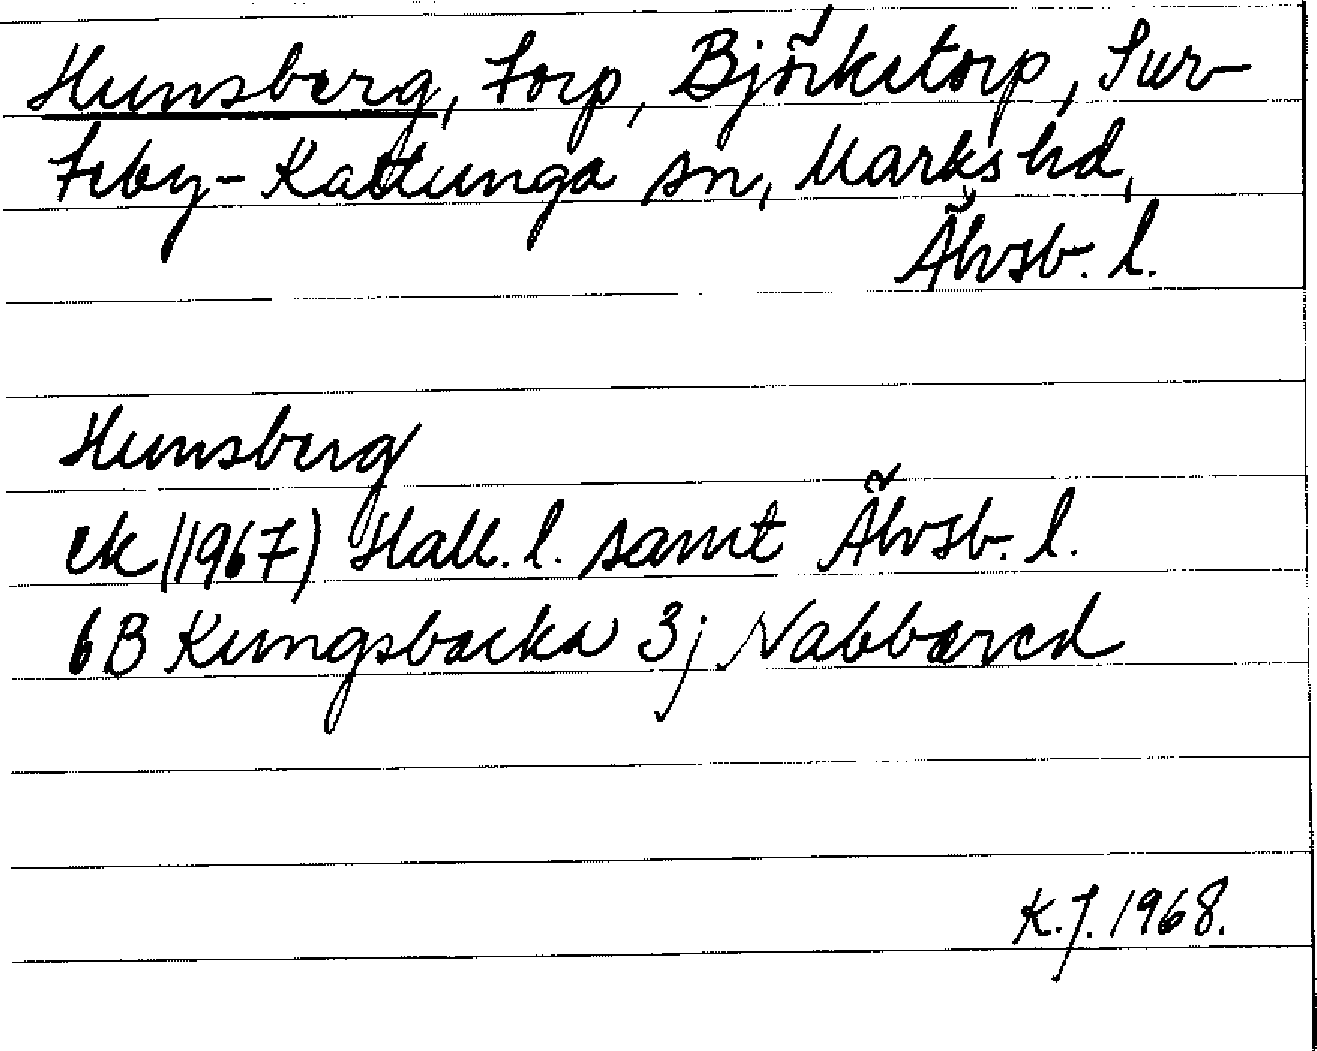 Hunsberg, Torp, Björketorp, Sur-
teby-Kattunga sn, Marks hd,
Älvsb. l.
Hunsberg
ek (1967) Hall. l. samt Älvsb. l.
6B Kungsbacka 3j Nabbared
K.J. 1968.